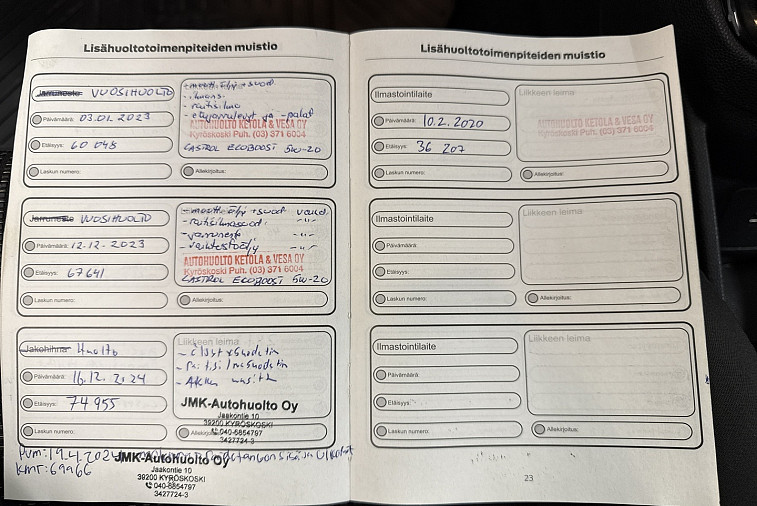 Lisähuoltotoimenpiteiden muistio
Jarruneste VUOSIHUOLTO
Päivämäärä: 03.01.2023
Etäisyys: 60 048
Laskun numero:
- moott.öljy + suod.
- raitisilma
- etujarrulevyt ja -palat
AUTOHUOLTO KETOLA & VESA OY
Kyröskoski Puh. (03) 371 6004
CASTROL ECOBOOST 5W-20
Allekirjoitus:
Jarruneste VUOSIHUOLTO
Päivämäärä: 12.12.2023
Etäisyys: 67641
Laskun numero:
- moott.öljy + suod.
- raitisilmasuod.
- jarruneste
- vaihteistoöljy
AUTOHUOLTO KETOLA & VESA OY
Kyröskoski Puh. (03) 371 6004
CASTROL ECOBOOST 5W-20
Allekirjoitus:
Jakohihna Huolto
Päivämäärä: 16.12.2024
Etäisyys: 74955
Laskun numero:
Liikkeen leima
- Öljyt + Suodatin
- Raitisilmasuodatin
- Akku
JMK-Autohuolto Oy
Jaakontie 10
39200 KYRÖSKOSKI
040-6854797
3427724-3
Pvm: 19.4.2024
Kmt: 69966
JMK-Autohuolto Oy
Jaakontie 10
39200 KYRÖSKOSKI
040-6854797
3427724-3
Lisähuoltotoimenpiteiden muistio
Ilmastointilaite
Päivämäärä: 10.2.2020
Etäisyys: 36 207
Laskun numero:
Liikkeen leima
AUTOHUOLTO KETOLA & VESA OY
Kyröskoski Puh. (03) 371 6004
Allekirjoitus:
Ilmastointilaite
Päivämäärä:
Etäisyys:
Laskun numero:
Liikkeen leima
Allekirjoitus:
Ilmastointilaite
Päivämäärä:
Etäisyys:
Laskun numero:
Liikkeen leima
Allekirjoitus:
23